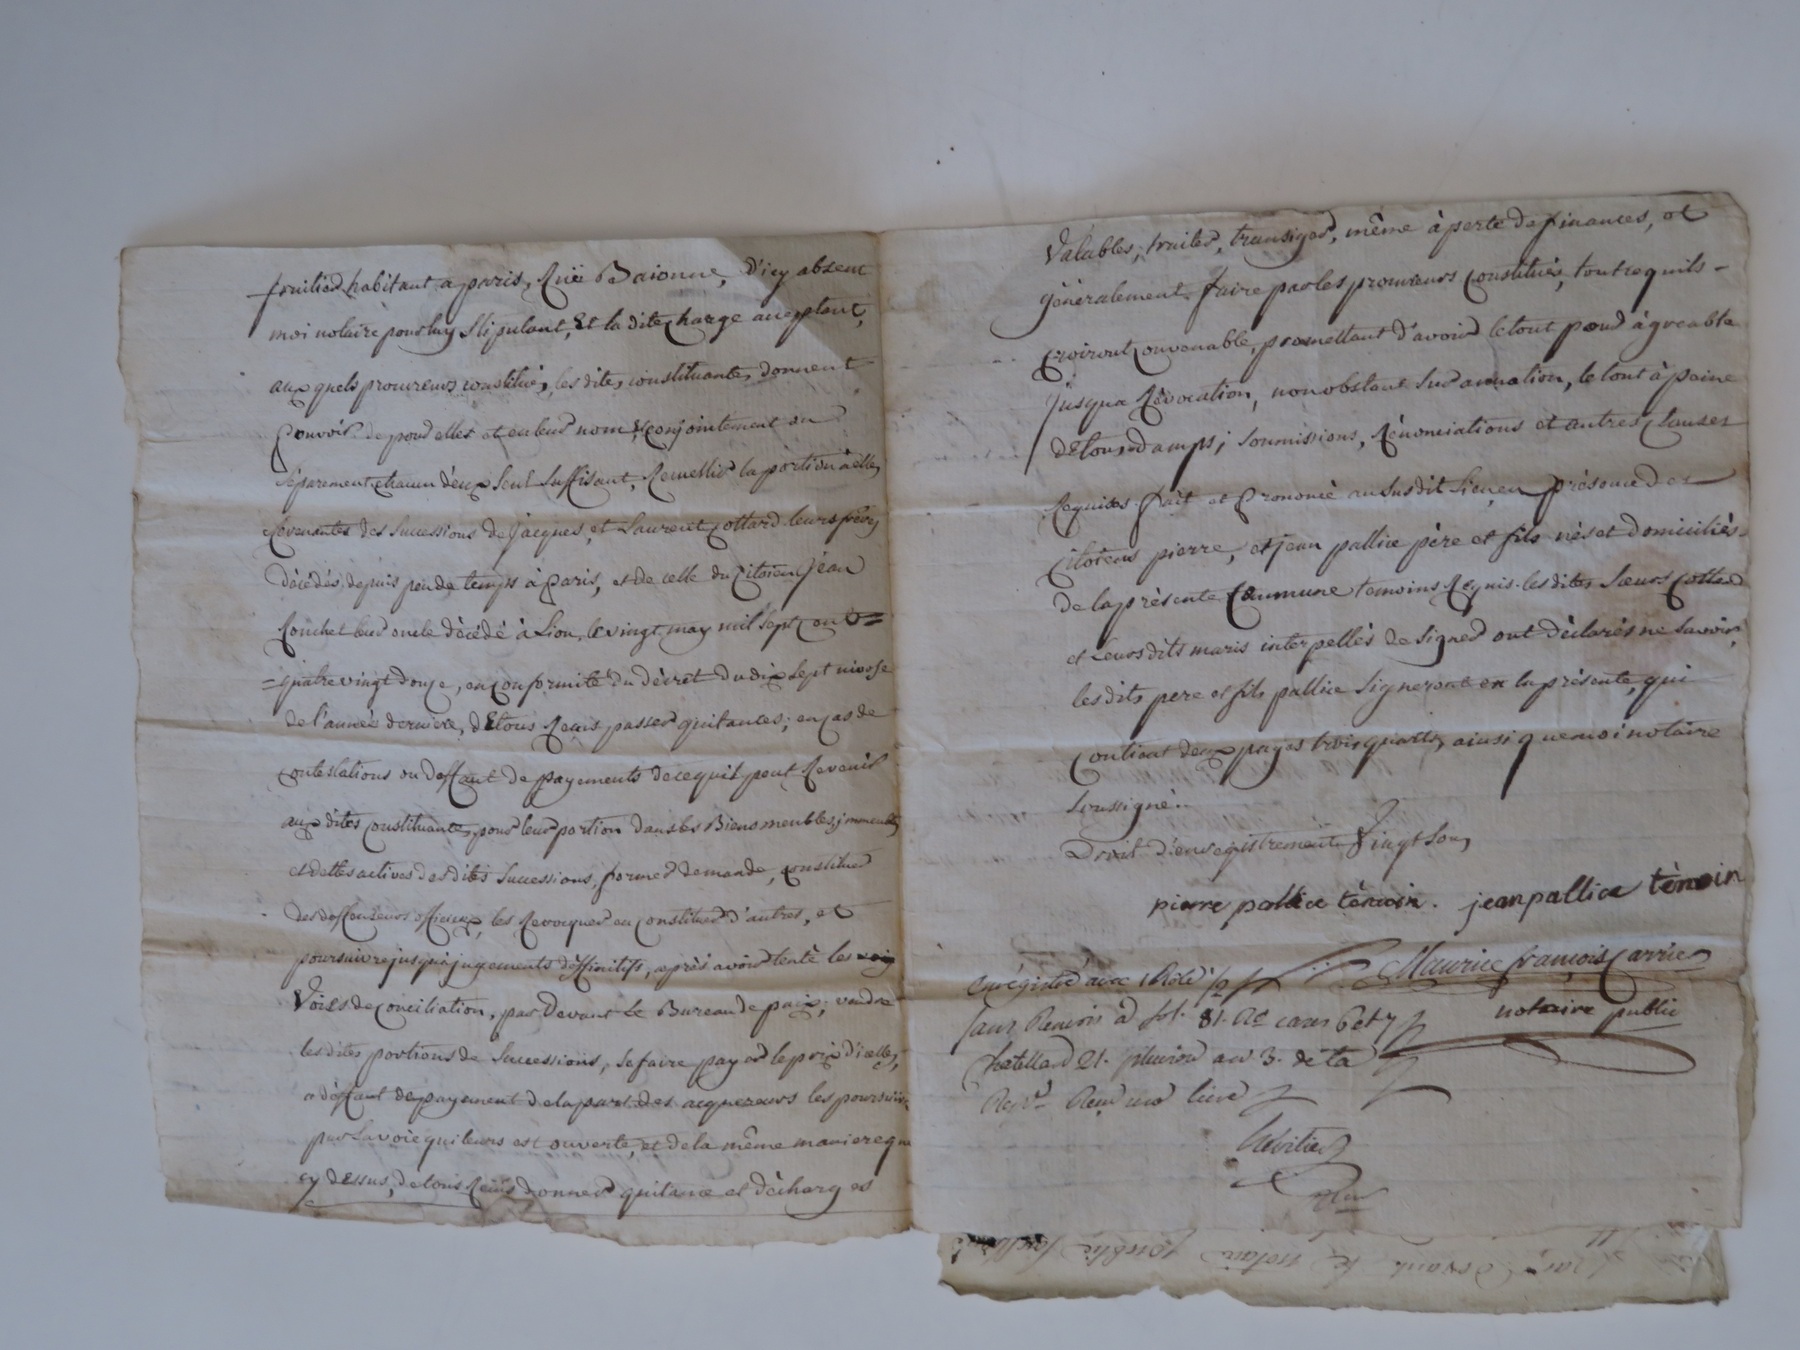 fruitier habitant a paris, Ruë Baionne, d'icy absent
moi notaire pour luy stipulant, Et la dite charge acceptant,
aux quels procureurs constitués, les dites constituantes donnent
Pouvoir de pour elles et en leur nom, conjointement ou
séparement chacun d'eux seul suffisant, Recuellir la portion à elles
Revenantes des sucessions de Jacques, et Laurent Cottard leurs frères
décédés depuis peu de temps à Paris, et de celle du Citoien Jean
Rouchet leur oncle décédé à Lion, le vingt may mil sept cent =
= quatre vingt douze, en conformité du décret du dix sept nivose
de l'année derniere, dEtous Reçus passer quitances; en cas de
contestations ou deffaut de payements de ce qui peut Revenir
aux dites constituantes pour leur portion dans les Biens meubles, immeubles
et dettes actives des dites Successions, former demande, constituer
des deffenseurs officieux, les Revoquer en constituer d'autres, et
poursuivre jusqu'à jugements déffinitifs, après avoir tenté les
Voies de conciliation, par devant Le Bureau de paix; vendre
les dites portions de Successions, se faire payer le prix d'icelles,
a déffaut de payement de la part des acquereurs les poursuivre
par la voie qui leurs est ouverte, et de la même maniere que
cy dEssus, de tous Reçus donner quitance et décharges
Valables; traiter, transiger, même à perte de finances, et
généralement faire par les procureurs constitués, tout ce qu'ils -
croiront convenable, promettant d'avoir le tout pour àgreable
jusqu'a Révocation, nonobstant surannation, le tout à peine
dEtous damps; soumissions, Rénonciations et autres clauses
Requises fait et Prononcé au susdit lieu, en présence des
Citoiens pierre, et jean pallice père et fils nés et domiciliés -
de la présente Commune temoins Requis. les dites Sœurs Cottard
et Leurs dits maris interpellés de signer ont déclarés ne savoir,
les dits pere et fils pallice signeront en la présente, qui
contient deux pages trois quarts, ainsi que moi notaire
soussigné..
Droit d'enregistrement Vingt sous
pierre pallice témoin. jean pallice témoin
Maurice françois Carrier
notaire public
Enrégistré avec 1 Rôle 1/2
sans Renvois à fol. 81. Ro cases 6 et 7
Chatellard 21. pluviose an 3. de la
Repe. Reçu une livre